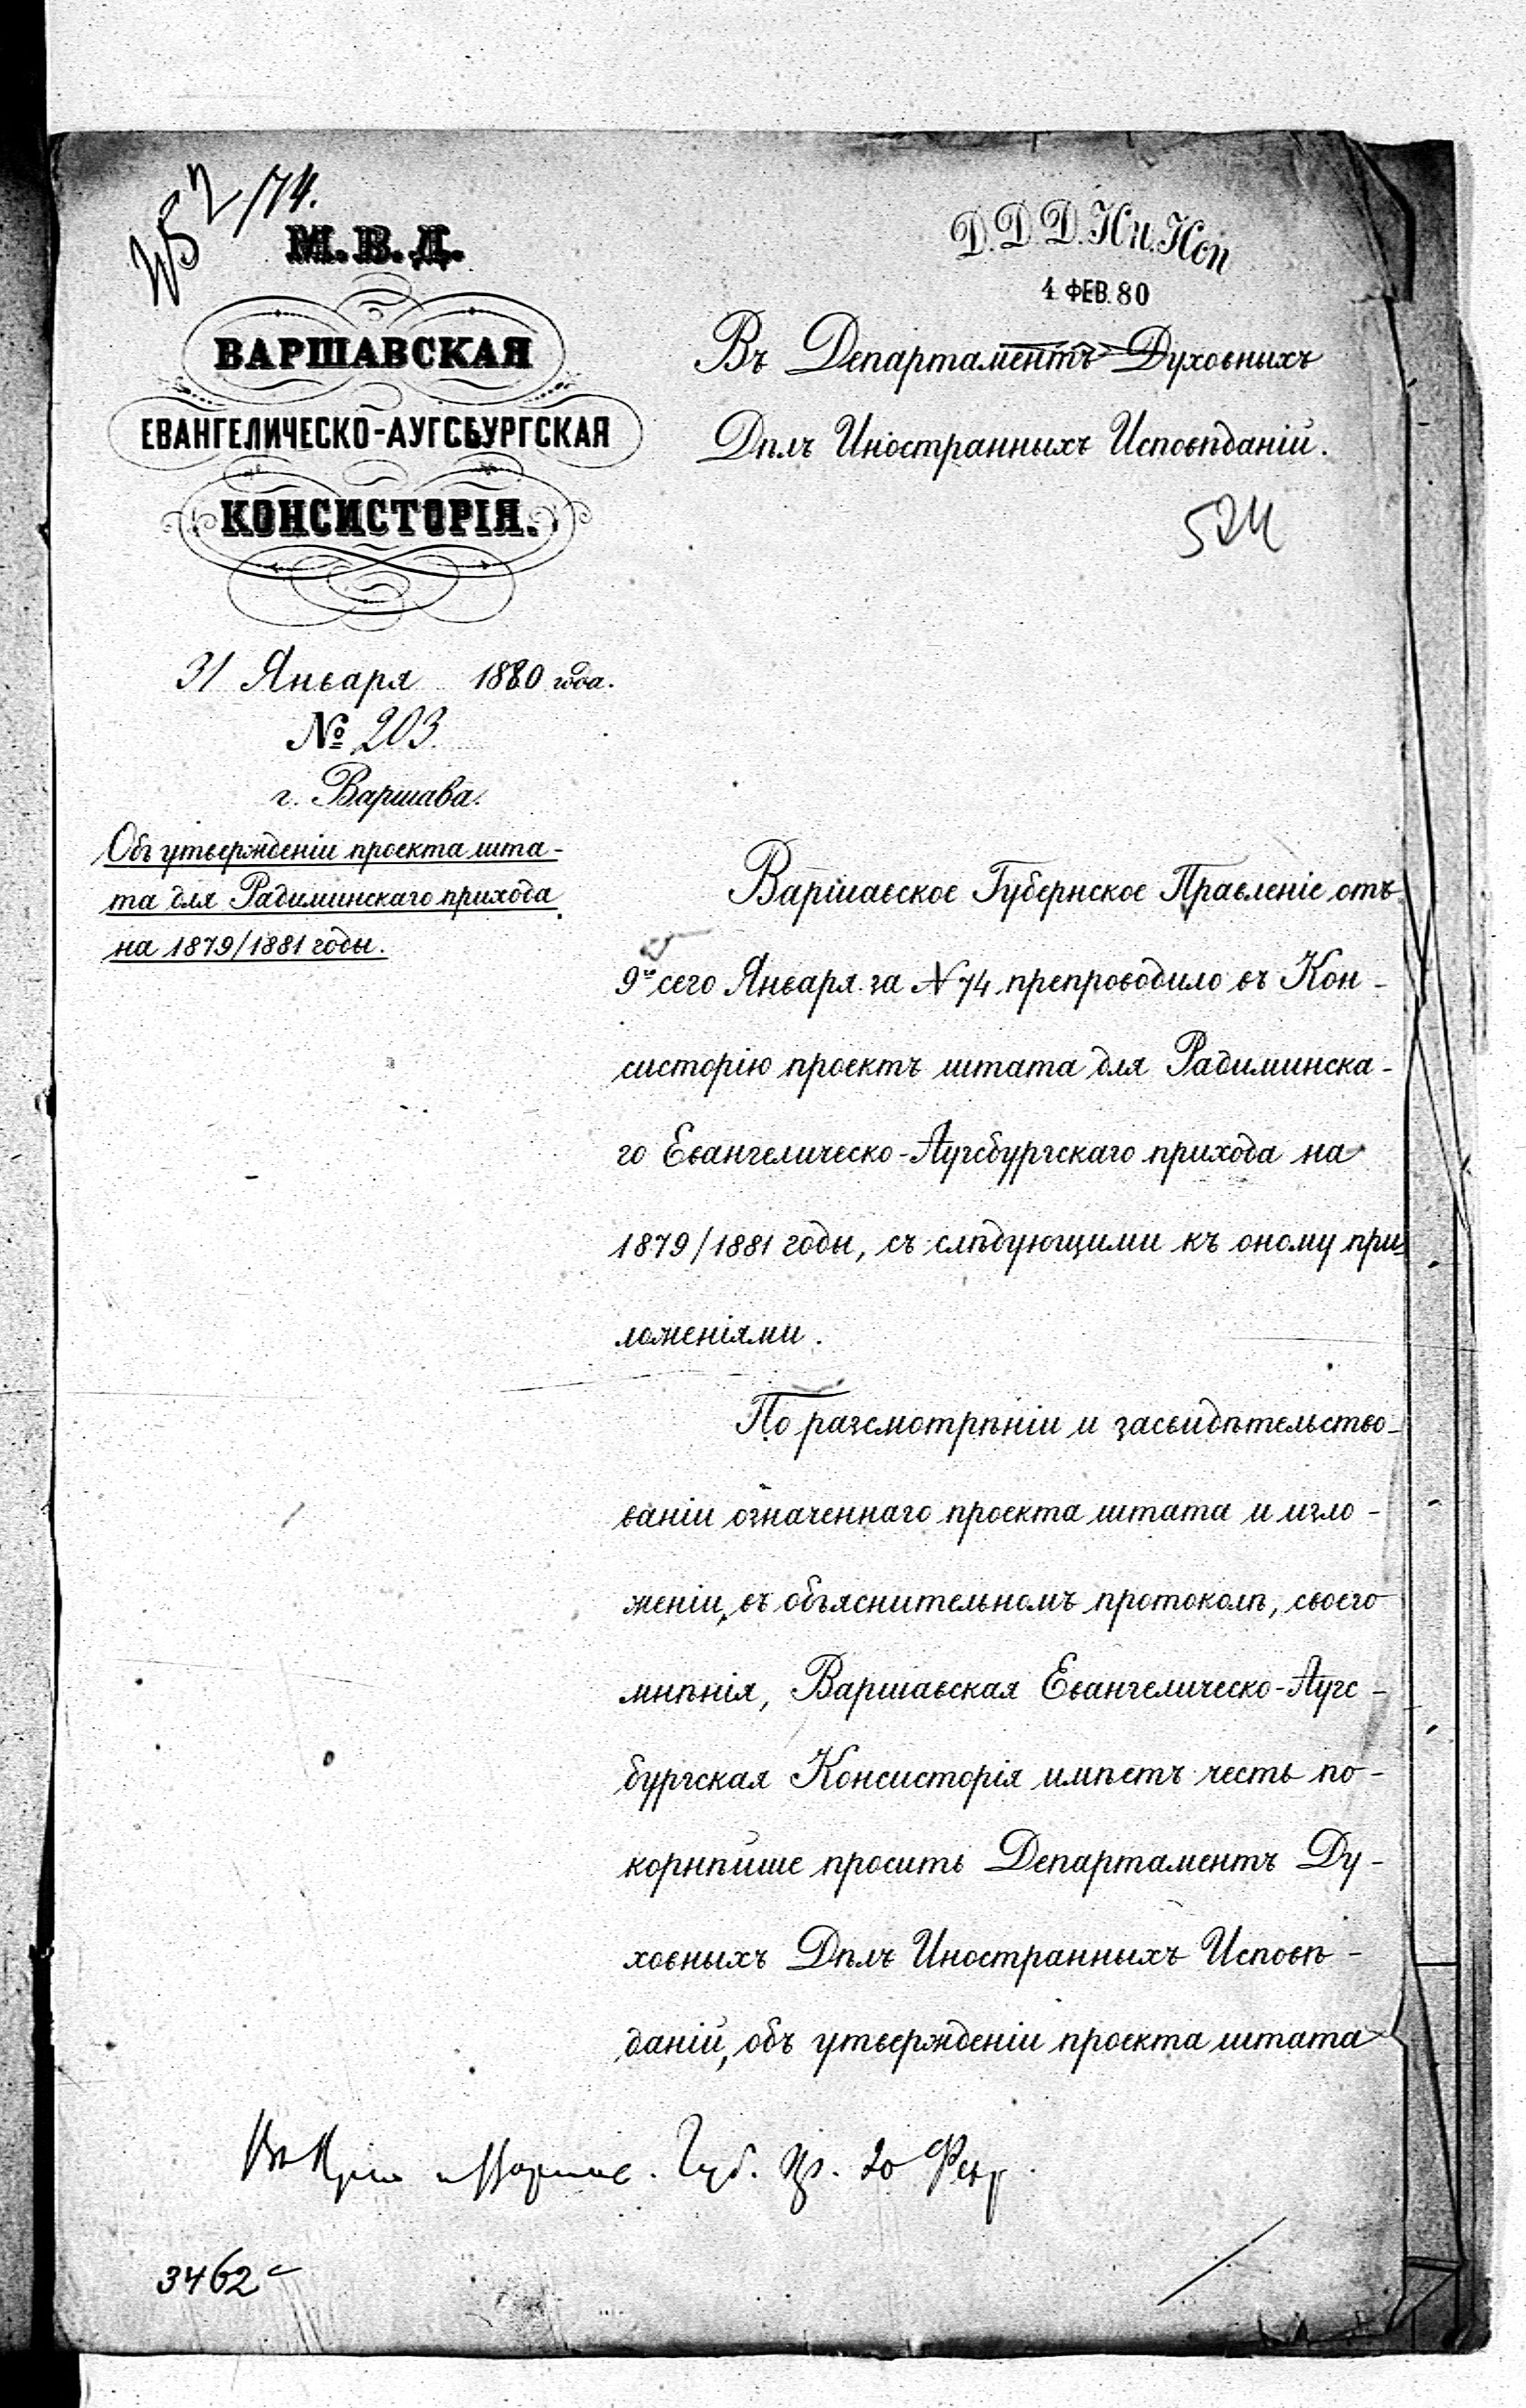 М. В. Д.
ВАРШАВСКАЯ
ЕВАНГЕЛИЧЕСКО-АУГСБУРГСКАЯ
КОНСИСТОРІЯ.
31 Января 1880 года.
№ 203.
г. Варшава.
Объ утвержденіи проекта шта-
та для Радиминскаго прихода
на 1879/1881 годы.
Д. Д. Д. Ин. Исп
4 ФЕВ. 80
Въ Департаментъ Духовныхъ
Дѣлъ Иностранныхъ Исповѣданій.
524
Варшавское Губернское Правленіе отъ
9го сего Января за № 74 препроводило въ Кон-
систорію проектъ штата для Радиминска-
го Евангелическо-Аугсбургскаго прихода на
1879/1881 годы, съ слѣдующими къ оному при-
ложеніями.
По разсмотрѣніи и засвидѣтельство-
ваніи означеннаго проекта штата и изло-
женіи, въ объяснительномъ протоколѣ, своего
мнѣнія, Варшавская Евангелическо-Аугс-
бургская Консисторія имѣетъ честь по-
корнѣйше просить Департаментъ Ду-
ховныхъ Дѣлъ Иностранныхъ Исповѣ-
даній, объ утвержденіи проекта штата
Губ. Пр. 20 Февр.
3462